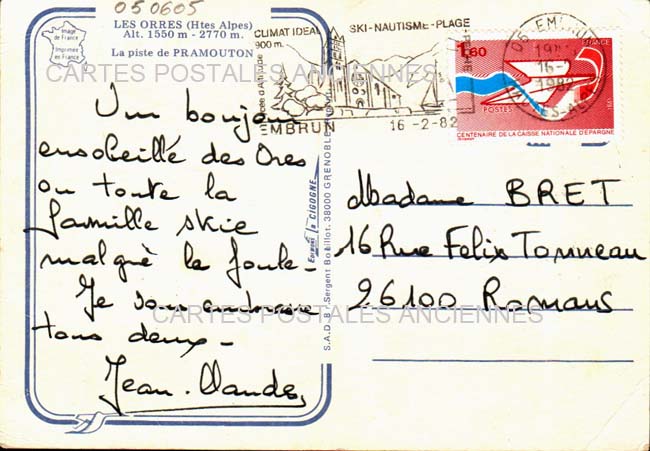 050605
LES ORRES (Htes Alpes)
Alt. 1550 m - 2770 m.
La piste de PRAMOUTON
Image
de France
Imprimée
en France
CLIMAT IDEAL
900 m.
SKI-NAUTISME-PLAGE
EMBRUN
16-2-82
05 EMBRUN
16-2
1982
1,60
FRANCE
POSTES
1981
CENTENAIRE DE LA CAISSE NATIONALE D'EPARGNE
CARTES POSTALES ANCIENNES
Un bonjour
ensoleillé des Ores
ou toute la
famille skie
malgré la foule-
Je vous embrasse
tous deux-
Jean-Claude,
Editions la CIGOGNE
Madame BRET
16 Rue Felix Tonneau
26100 Romans
CARTES POSTALES ANCIENNES